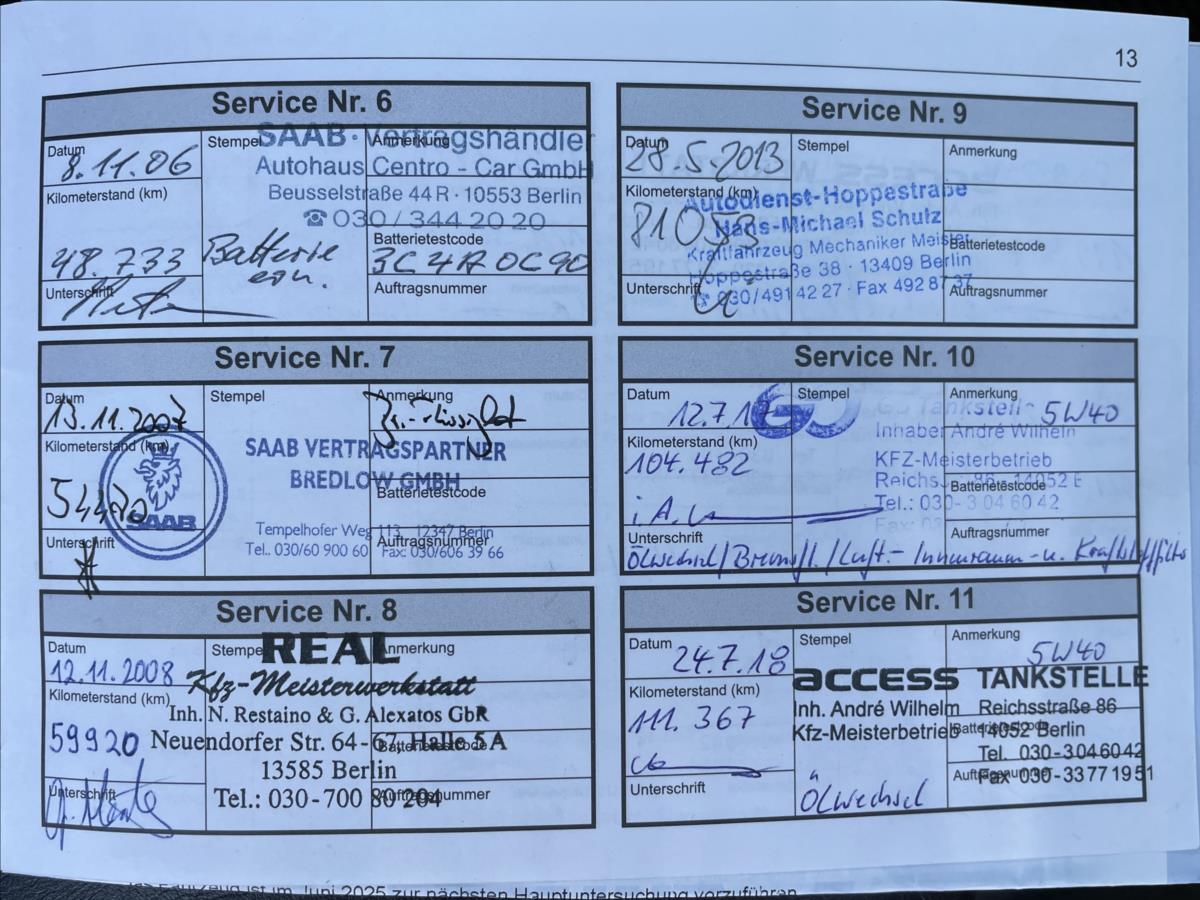 13
Service Nr. 6
Datum
8.11.06
Stempel
SAAB · Vertragshändler
Anmerkung
Autohaus Centro - Car GmbH
Beusselstraße 44 R · 10553 Berlin
☎ 030 / 344 20 20
Kilometerstand (km)
48.733
Batterie
ern.
Batterietestcode
3C4A0C90
Unterschrift
Auftragsnummer
Service Nr. 7
Datum
13.11.2007
Stempel
Anmerkung
Kilometerstand (km)
SAAB
SAAB VERTRAGSPARTNER
BREDLOW GMBH
Batterietestcode
Tempelhofer Weg 113 12347 Berlin
Tel.: 030/60 900 60 Fax: 030/606 39 66
Unterschrift
Auftragsnummer
Service Nr. 8
Datum
12.11.2008
Stempel
REAL
Anmerkung
Kfz-Meisterwerkstatt
Kilometerstand (km)
59920
Inh. N. Restaino & G. Alexatos GbR
Neuendorfer Str. 64-67, Halle 5 A
Batterietestcode
13585 Berlin
Tel.: 030-700 80 204
Unterschrift
Auftragsnummer
Service Nr. 9
Datum
28.5.2013
Stempel
Anmerkung
Kilometerstand (km)
81053
Autodienst-Hoppestraße
Hans-Michael Schulz
Kraftfahrzeug Mechaniker Meister
Hoppestraße 38 · 13409 Berlin
☎ 030/491 42 27 · Fax 492 87 37
Batterietestcode
Unterschrift
Auftragsnummer
Service Nr. 10
Datum
12.7.17
Stempel
GO
Anmerkung
5W40
Go Tankstelle
Inhaber André Wilhelm
Kilometerstand (km)
104.482
KFZ-Meisterbetrieb
Reichs 86 14052
Batterietestcode
Tel.: 030- 3 04 60 42
i.A.
Unterschrift
Auftragsnummer
Ölwechsel/Bremsfl./Luft- Innenraum- u. Kraftstofffilter
Service Nr. 11
Datum
24.7.18
Stempel
Anmerkung
5W40
access TANKSTELLE
Kilometerstand (km)
111.367
Inh. André Wilhelm Reichsstraße 86
Kfz-Meisterbetrieb 14052 Berlin
Batterietestcode
Tel. 030-304 60 42
Fax 030-33 77 19 51
Auftragsnummer
Unterschrift
Ölwechsel
Fahrzeug ist im Juni 2025 zur nächsten Hauptuntersuchung vorzuführen